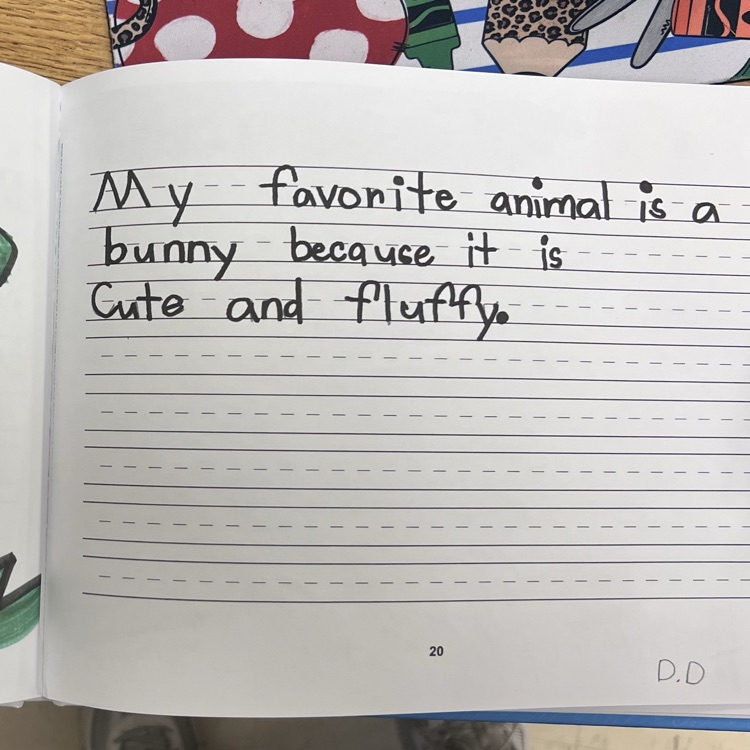 My favorite animal is a
bunny because it is
Cute and fluffy.
20
D.D